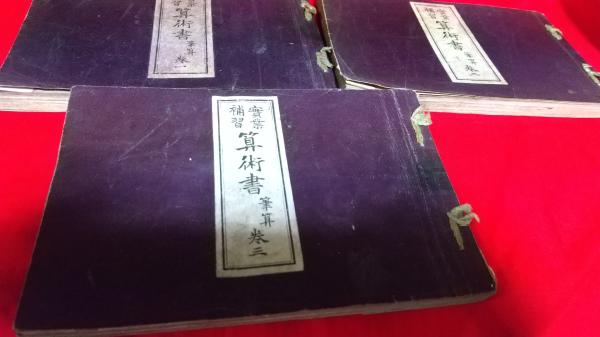 實業
補習
算術書
筆算
巻三
補習
算術書
筆算
巻一
實業
補習
算術書
筆算
巻二